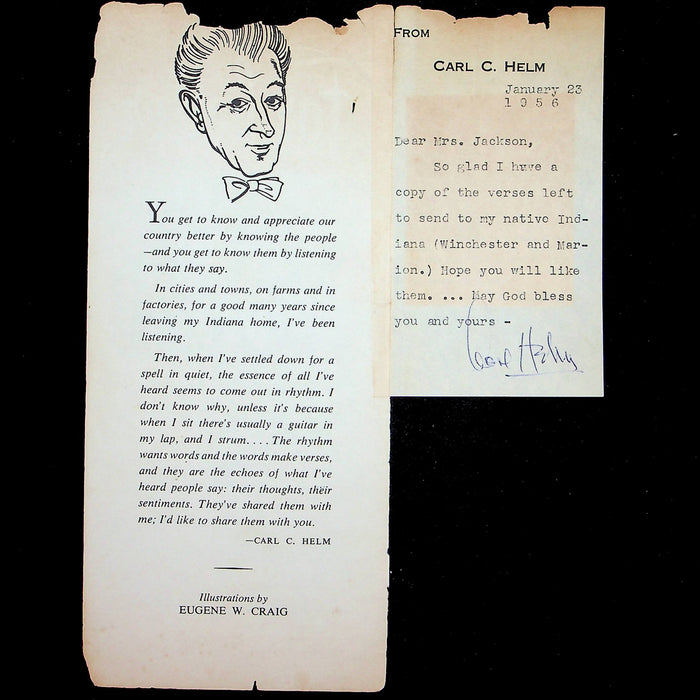 You get to know and appreciate our
country better by knowing the people
—and you get to know them by listening
to what they say.
In cities and towns, on farms and in
factories, for a good many years since
leaving my Indiana home, I've been
listening.
Then, when I've settled down for a
spell in quiet, the essence of all I've
heard seems to come out in rhythm. I
don't know why, unless it's because
when I sit there's usually a guitar in
my lap, and I strum. . . . The rhythm
wants words and the words make verses,
and they are the echoes of what I've
heard people say: their thoughts, their
sentiments. They've shared them with
me; I'd like to share them with you.
—CARL C. HELM
Illustrations by
EUGENE W. CRAIG
FROM
CARL C. HELM
January 23
1 9 5 6
Dear Mrs. Jackson,
So glad I have a
copy of the verses left
to send to my native Ind-
iana (Winchester and Mar-
ion.) Hope you will like
them. ... May God bless
you and yours -
Carl Helm